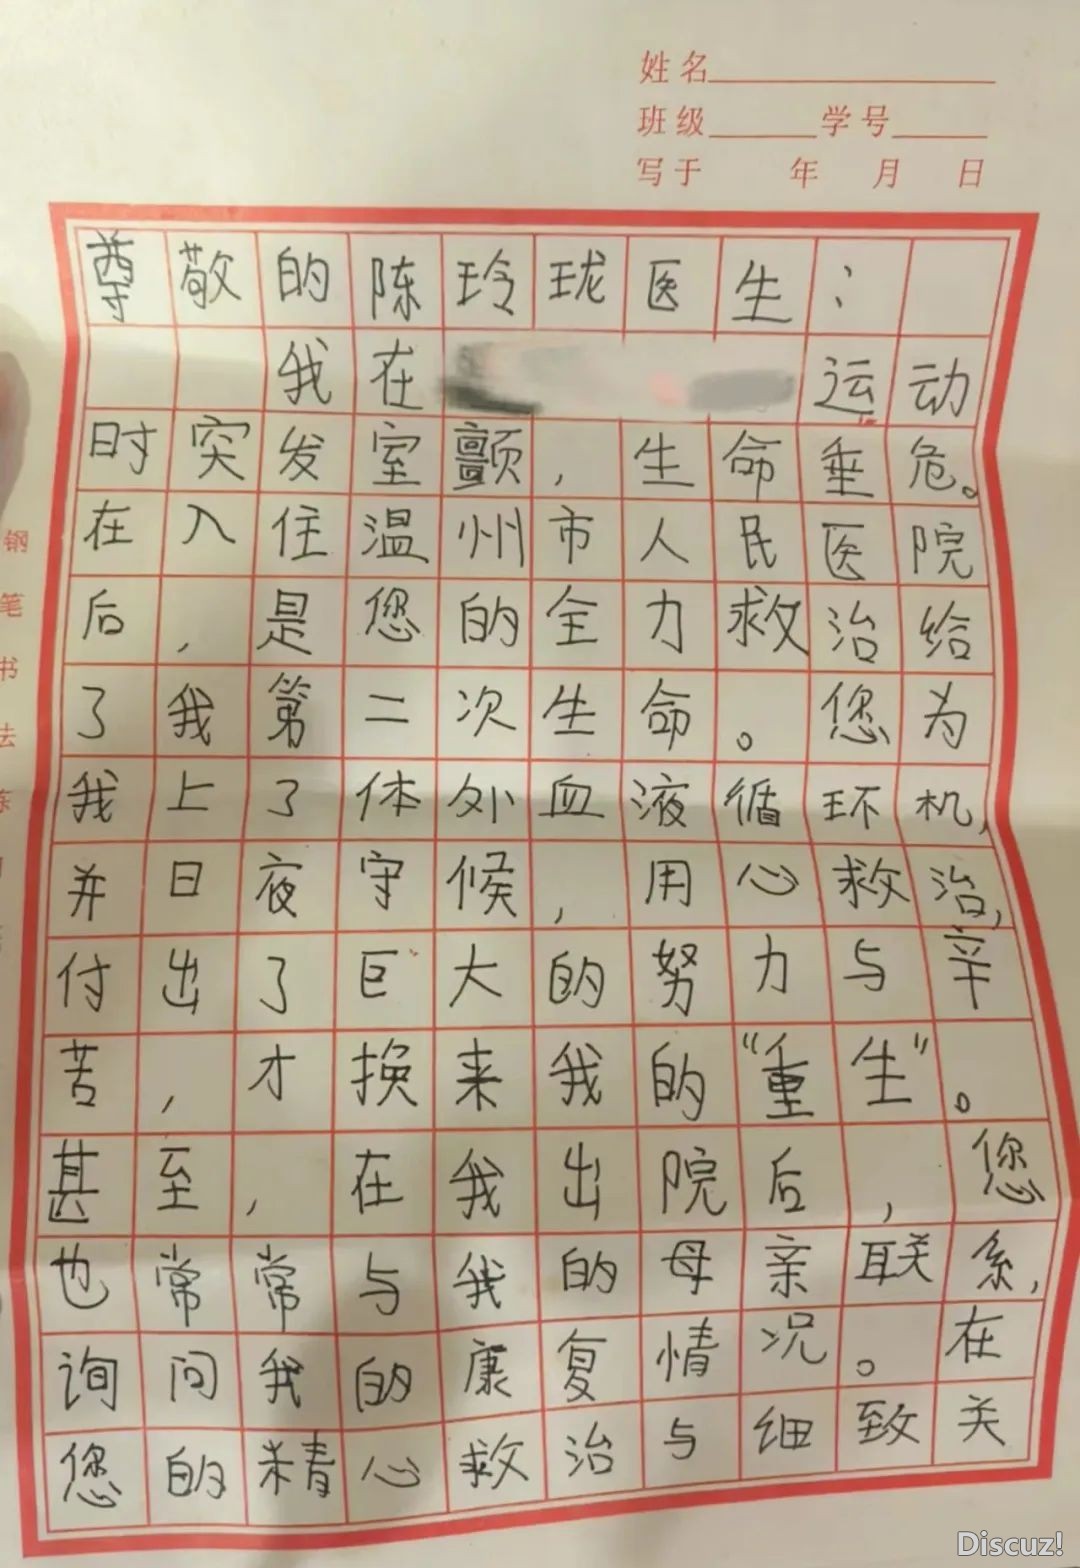 姓名
班级 学号
写于 年 月 日
尊敬的陈玲珑医生：
我在 运动
时突发室颤，生命垂危。
在入住温州市人民医院
后，是您的全力救治给
了我第二次生命。您为
我上了体外血液循环机，
并日夜守候，用心救治，
付出了巨大的努力与辛
苦，才换来我的“重生”。
甚至，在我出院后，您
也常常与我的母亲联系，
询问我的康复情况。在
您的精心救治与细致关
钢笔书法
Discuz!